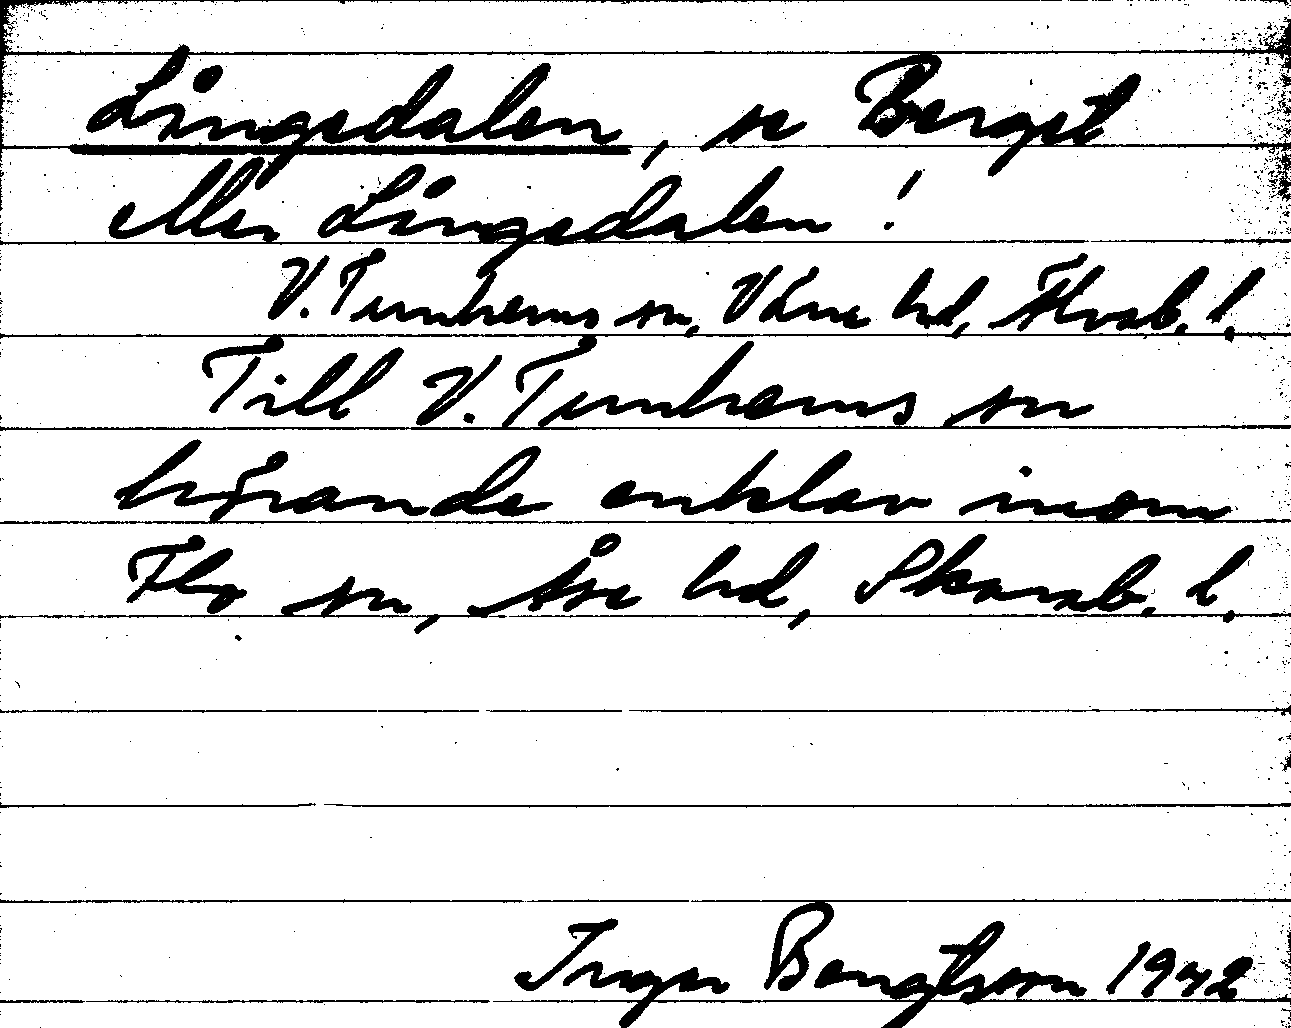 Långedalen, se Berget
eller Långedalen!
V. Tunhems sn, Väne hd, Älvsb. l.
Till V. Tunhems sn
hörande enklav inom
Flo sn, Åse hd, Skarab. l.
Inger Bengtsson 1942